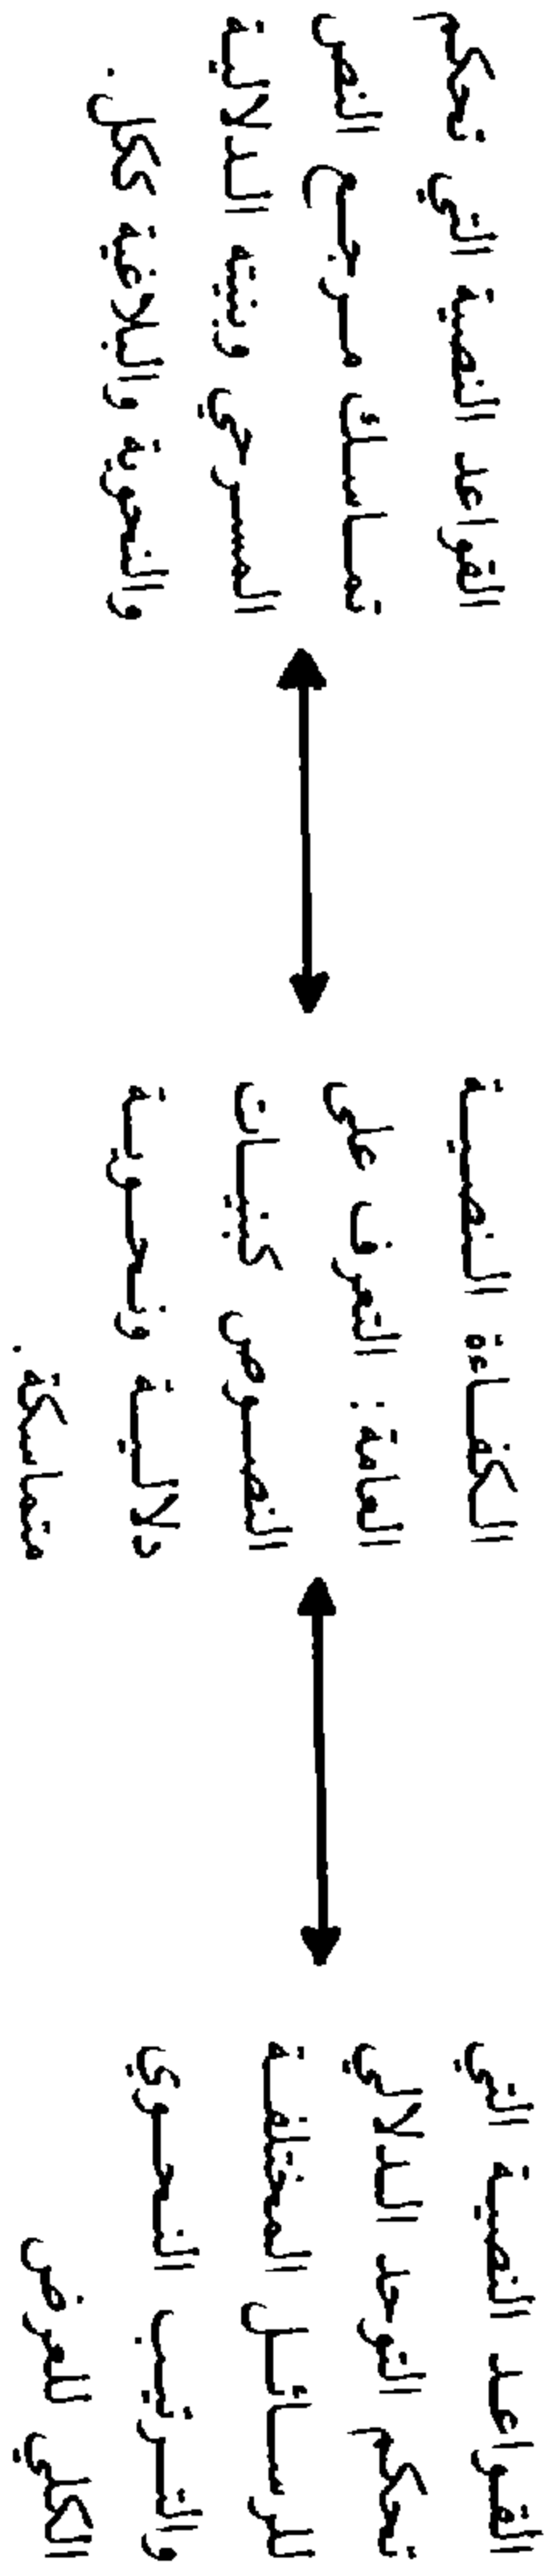 القواعد النصية التي
تحكم التوحد الدلالي
للرسائل المختلفة
والترتيب النحوي
الكلي للعرض
الكفاءة النصية
العامة: التعرف على
النصوص كبنيات
دلالية ونحوية
متماسكة.
القواعد النصية التي تحكم
تماسك مرجع النص
المسرحي وبنيته الدلالية
والنحوية والبلاغية ككل.